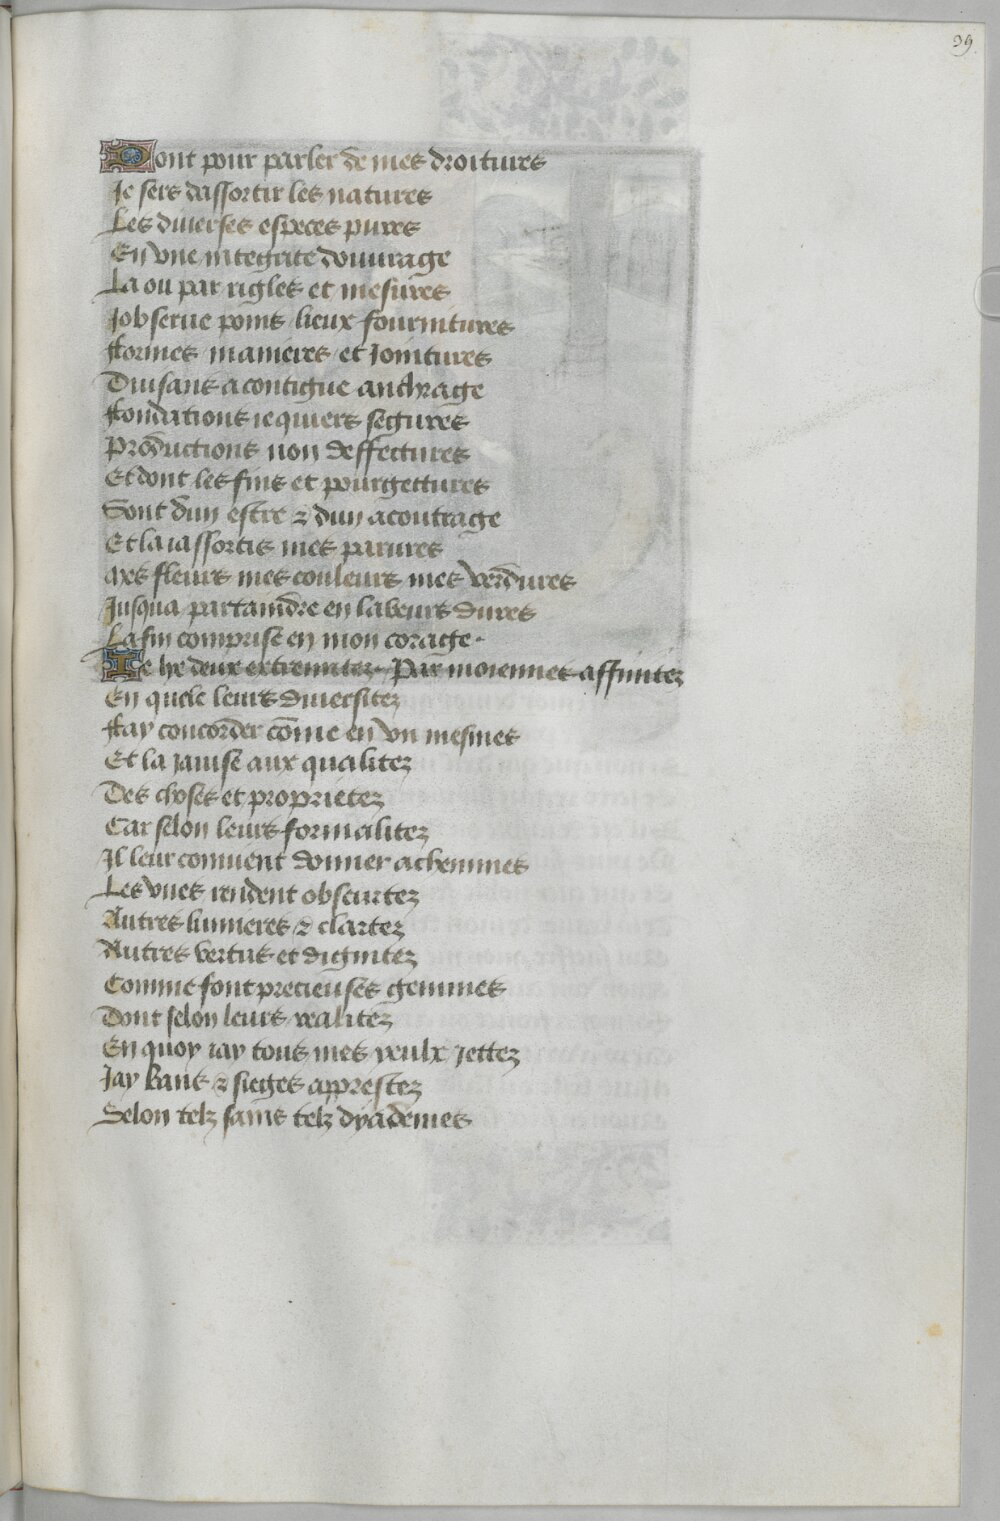 39
Dont pour parler de mes droitures
Je sers dassortir les natures
Les diuerses especes pures
En vne integrite douurage
La ou par rigles et mesures
Jobserue poins lieux fournitures
fformes manieres et Jointures
Duisans a contigue anchrage
ffondations ie quiers segures
Productions non deffectures
Et dont les fins et pourgettures
Sont dun estre & dun acoutrage
Et la iassortis mes parures
Mes fleurs mes couleurs mes verdures
Jusqua partaindre en labeurs dures
La fin comprise en mon corage
Je lye deux extremitez Par moiennes affinitez
En quele leurs diuersitez
ffay concorder cõme en vn mesmes
Et la Javise aux qualitez
Des choses et proprietez
Car selon leurs formalitez
Il leur conuient donner achemmes
Les vnes rendent obscurtez
Autres lumieres & clartez
Autres vertus et dignitez
Comme font precieuses gemmes
Dont selon leurs realitez
En quoy iay tous mes yeulx Jettez
Jay bans & sieges apprestez
Selon telz sains telz dyademes